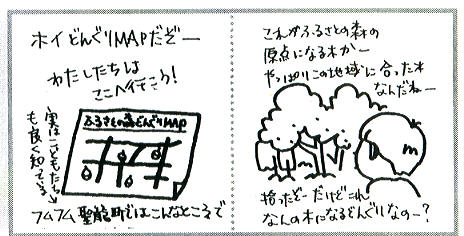 ホイどんぐりMAPだぞー
わたしたちは
ここへ行こう!
実はこどもたち
も良く知っている
ふるさとの森どんぐりMAP
フムフム聖籠町ではこんなところで
これがふるさとの森の
原点になる木かー
やっぱりこの地域に合った木
なんだねー
拾ったぞーだけどこれ
なんの木になるどんぐりなのー?